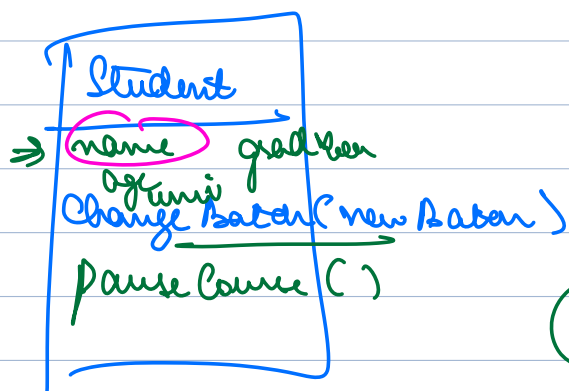 Student
name gradYear
age univ
Change Batch (new Batch)
pause Course ( )